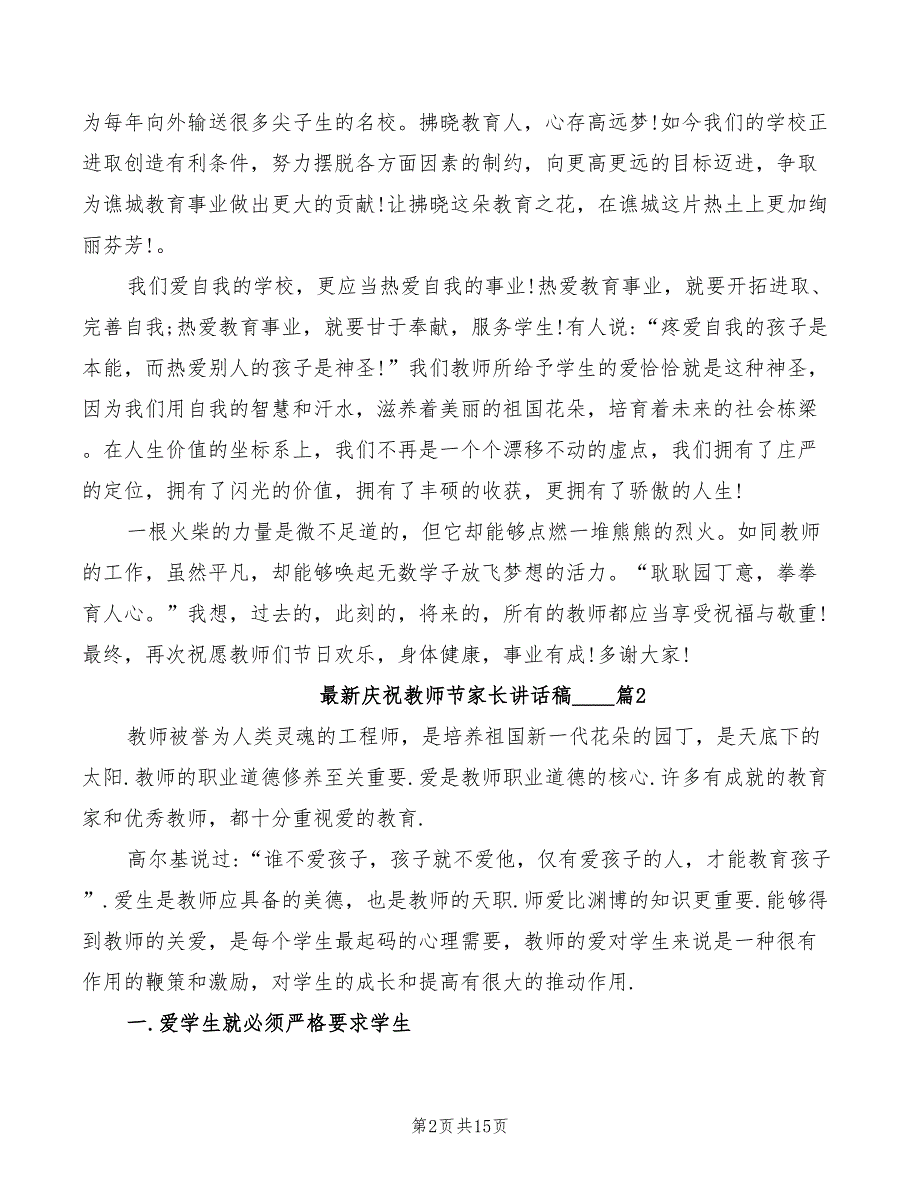 为每年向外输送很多尖子生的名校。拂晓教育人，心存高远梦!如今我们的学校正
进取创造有利条件，努力摆脱各方面因素的制约，向更高更远的目标迈进，争取
为谯城教育事业做出更大的贡献!让拂晓这朵教育之花，在谯城这片热土上更加绚
丽芬芳!。
我们爱自我的学校，更应当热爱自我的事业!热爱教育事业，就要开拓进取、
完善自我;热爱教育事业，就要甘于奉献，服务学生!有人说:“疼爱自我的孩子是
本能，而热爱别人的孩子是神圣!”我们教师所给予学生的爱恰恰就是这种神圣，
因为我们用自我的智慧和汗水，滋养着美丽的祖国花朵，培育着未来的社会栋梁
。在人生价值的坐标系上，我们不再是一个个漂移不动的虚点，我们拥有了庄严
的定位，拥有了闪光的价值，拥有了丰硕的收获，更拥有了骄傲的人生!
一根火柴的力量是微不足道的，但它却能够点燃一堆熊熊的烈火。如同教师
的工作，虽然平凡，却能够唤起无数学子放飞梦想的活力。“耿耿园丁意，拳拳
育人心。”我想，过去的，此刻的，将来的，所有的教师都应当享受祝福与敬重!
最终，再次祝愿教师们节日欢乐，身体健康，事业有成!多谢大家!
最新庆祝教师节家长讲话稿____篇2
教师被誉为人类灵魂的工程师，是培养祖国新一代花朵的园丁，是天底下的
太阳.教师的职业道德修养至关重要.爱是教师职业道德的核心.许多有成就的教育
家和优秀教师，都十分重视爱的教育.
高尔基说过:“谁不爱孩子，孩子就不爱他，仅有爱孩子的人，才能教育孩子
”.爱生是教师应具备的美德，也是教师的天职.师爱比渊博的知识更重要.能够得
到教师的关爱，是每个学生最起码的心理需要，教师的爱对学生来说是一种很有
作用的鞭策和激励，对学生的成长和提高有很大的推动作用.
一.爱学生就必须严格要求学生
第2页共15页